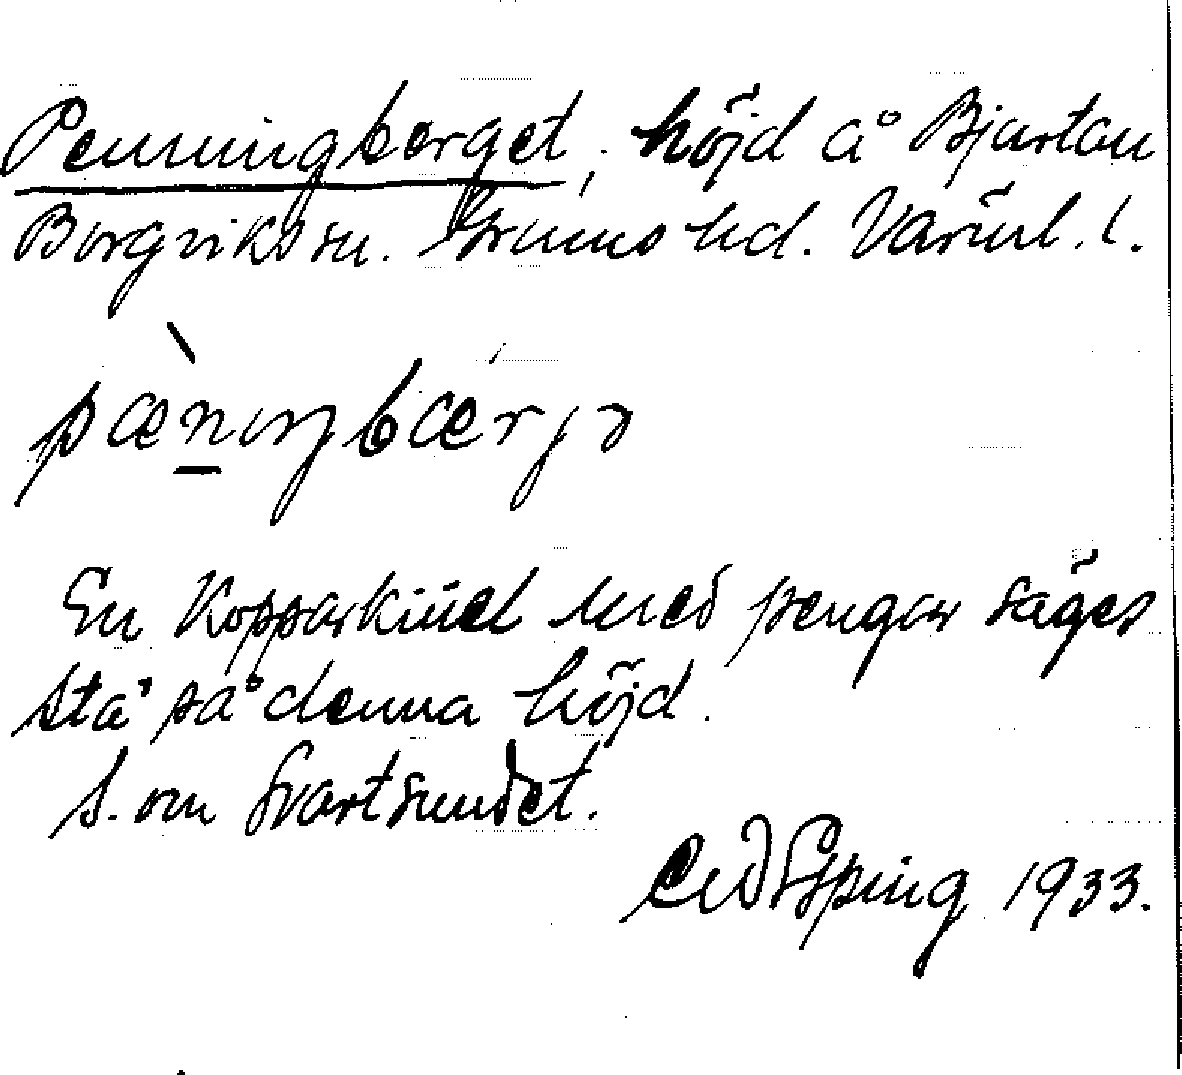 Penningberget, höjd å Bjurtan
Borgviks sn. Grums hd. Värml. l.
pænıŋbærjə
En kopparkittel med pengar säges
stå på denna höjd.
S. om Svartsundet.
Esping 1933.